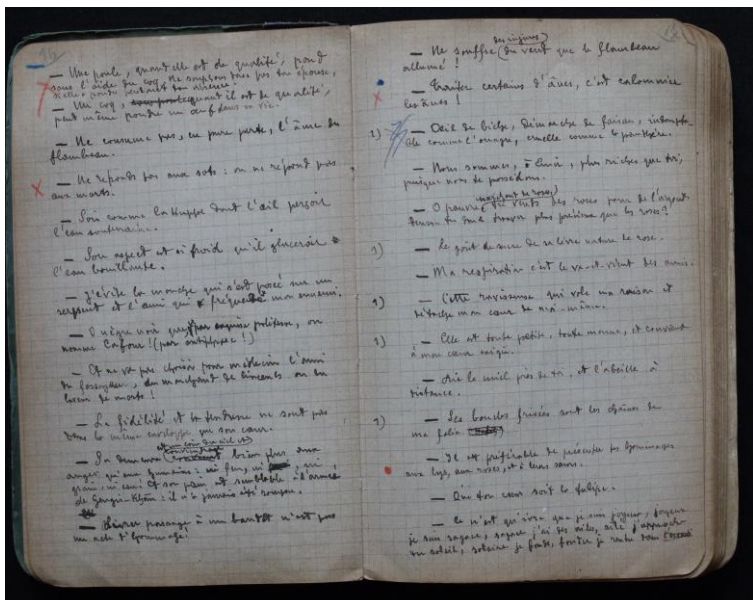 — Une poule, quand elle est de qualité, pond
sans l'aide du coq. Ne soupçonne donc pas ton épouse,
si elle a pondu pendant ton absence !
— Un coq, quant il est de qualité,
peut même pondre un œuf dans sa vie.
— Ne consume pas, en pure perte, l'âme du
flambeau.
— Ne réponds pas aux sots : on ne répond pas
aux morts.
— Sois comme la Huppe dont l'œil perçoit
l'eau souterraine.
— Son aspect est si froid qu'il glacerait
l'eau bouillante.
— J'évite la mouche qui s'est posée sur un
serpent et l'ami qui fréquente mon ennemi.
— O nègre noir que, par exquise politesse, on
nomme Cafour ! (par antiphrase !)
— Et ne va pas choisir pour médecin l'ami
du fossoyeur, du marchand de linceuls ou du
laveur de morts !
— La fidélité et la tendresse ne sont pas
dans la même enveloppe que son cœur.
— Sa demeure est un coin du ciel et convient bien plus aux
anges qu'aux humains : ni feu, ni
grain, ni eau. Et son pain est semblable à l'armée
de Gengis-Khân : il n'a jamais été rompu.
— Livrer passage à un bandit n'est pas
un acte d'hommage.
— Ne souffre (des injures) (du vent que le flambeau
allumé !
— Traiter certains d'ânes, c'est calomnier
les ânes !
1) — Œil de biche, démarche de faisan, indompta-
ble comme l'onagre, cruelle comme la panthère.
— Nous sommes, ô Émir, plus riches que toi,
puisque nous te possédons.
— O pauvre marchand de roses, tu vends des roses pour de l'argent
penses-tu donc trouver plus précieux que les roses ?
1) — Le goût du sucre de sa lèvre nature de rose.
— Ma respiration c'est le va-et-vient des amis.
1) — Cette ravisseuse qui vole ma raison et
détache mon cœur de moi-même.
1) — Elle est toute petite, toute menue, et convient
à mon cœur exigu.
— Aie le miel près de toi, et l'abeille à
distance.
1) — Ses boucles frisées sont les chaînes de
ma folie
— Il est préférable de présenter tes hommages
aux lys, aux roses, et à leurs sœurs.
— Que ton cœur soit la tulipe.
— Ce n'est qu'ivre que je suis joyeux, joyeux
je suis sagace, sagace j'ai des ailes, ailé j'approche
du soleil, solaire je fonds, fondu je rentre dans